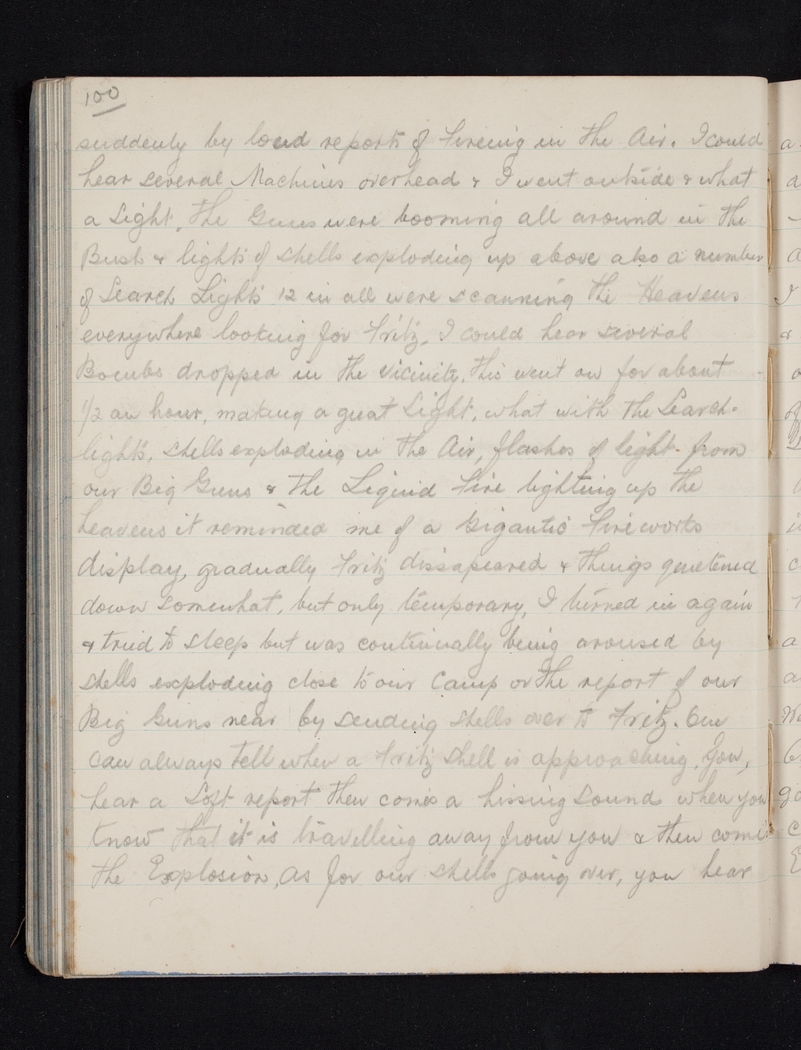 100
suddenly by loud reports of fireing in the Air. I could
hear several Machines overhead & I went outside & what
a Light, the Guns were booming all around in the
Bush & lights of shells exploding up above also a number
of Search Lights 12 in all were scanning the Heavens
everywhere looking for Fritz. I could hear several
Boombs dropped in the vicinity. This went on for about
1/2 an hour, making a great Light, what with the Search-
lights, shells exploding in the Air, flashes of light from
our Big Guns & the Liquid Fire lighting up the
heavens it reminded me of a Gigantic Fireworks
display, gradually Fritz dissapeared & things quietened
down somewhat, but only temporary, I turned in again
& tried to sleep but was continually being aroused by
shells exploding close to our Camp or the report of our
Big Guns near by sending shells over to Fritz. One
can always tell when a Fritz shell is approaching. You,
hear a Soft report then comes a hissing sound when you
know that it is travelling away from you & then comes
the Explosion, as for our shells going over, you hear